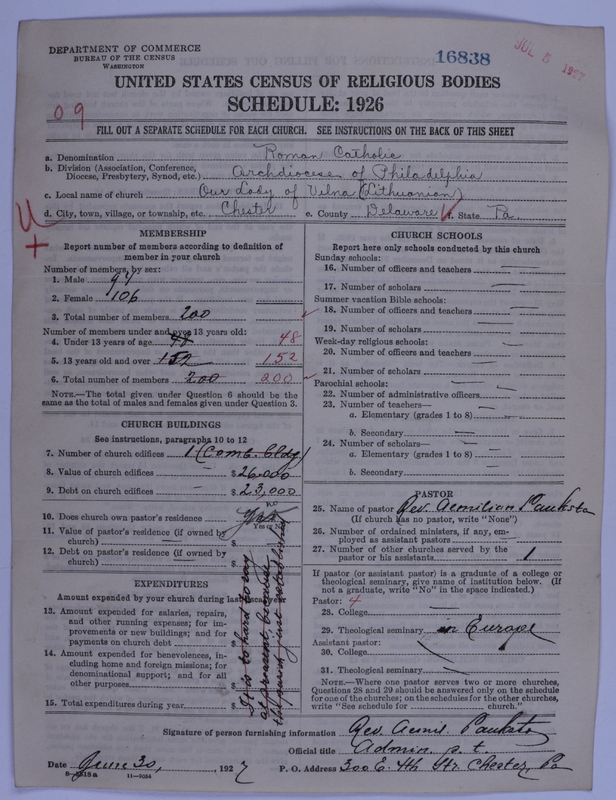 DEPARTMENT OF COMMERCE
BUREAU OF THE CENSUS
WASHINGTON
16838
JUL 5 1927
UNITED STATES CENSUS OF RELIGIOUS BODIES
SCHEDULE: 1926
09
FILL OUT A SEPARATE SCHEDULE FOR EACH CHURCH. SEE INSTRUCTIONS ON THE BACK OF THIS SHEET
a. Denomination Roman Catholic
b. Division (Association, Conference, Diocese, Presbytery, Synod, etc.) Archdiocese of Philadelphia
c. Local name of church Our Lady of Vilna (Lithuanian)
d. City, town, village, or township, etc. Chester e. County Delaware f. State Pa.
MEMBERSHIP
Report number of members according to definition of
member in your church
Number of members, by sex:
1. Male 94
2. Female 106
3. Total number of members 200
Number of members under and over 13 years old:
4. Under 13 years of age 48 48
5. 13 years old and over 152 152
6. Total number of members 200 200
NOTE.—The total given under Question 6 should be the
same as the total of males and females given under Question 3.
CHURCH BUILDINGS
See instructions, paragraphs 10 to 12
7. Number of church edifices 1 (Comb. bldg)
8. Value of church edifices $ 26,000
9. Debt on church edifices $ 23,000
10. Does church own pastor's residence no
Yes or No
11. Value of pastor's residence (if owned by
church) $
12. Debt on pastor's residence (if owned by
church) $
EXPENDITURES
Amount expended by your church during last year
13. Amount expended for salaries, repairs,
and other running expenses; for im-
provements or new buildings; and for
payments on church debt $
14. Amount expended for benevolences, in-
cluding home and foreign missions; for
denominational support; and for all
other purposes $
15. Total expenditures during year $
It is to hard to say
at present, because
the parish just established
CHURCH SCHOOLS
Report here only schools conducted by this church
Sunday schools:
16. Number of officers and teachers —
17. Number of scholars —
Summer vacation Bible schools:
18. Number of officers and teachers —
19. Number of scholars —
Week-day religious schools:
20. Number of officers and teachers —
21. Number of scholars —
Parochial schools:
22. Number of administrative officers —
23. Number of teachers—
a. Elementary (grades 1 to 8) —
b. Secondary —
24. Number of scholars—
a. Elementary (grades 1 to 8) —
b. Secondary —
PASTOR
25. Name of pastor Rev. Aemilian Pauksta
(If church has no pastor, write "None")
26. Number of ordained ministers, if any, em-
ployed as assistant pastor —
27. Number of other churches served by the
pastor or his assistants 1
If pastor (or assistant pastor) is a graduate of a college or
theological seminary, give name of institution below. (If
not a graduate, write "No" in the space indicated.)
Pastor: 4
28. College —
29. Theological seminary in Europe
Assistant pastor:
30. College
31. Theological seminary
NOTE.—Where one pastor serves two or more churches,
Questions 28 and 29 should be answered only on the schedule
for one of the churches; on the schedules for the other churches,
write "See schedule for church."
Signature of person furnishing information Rev. Aemil. Pauksta
Official title Admin. p. t.
Date June 30, 1927 P. O. Address 300 E. 4th Str. Chester, Pa
8—2318 a 11—9054